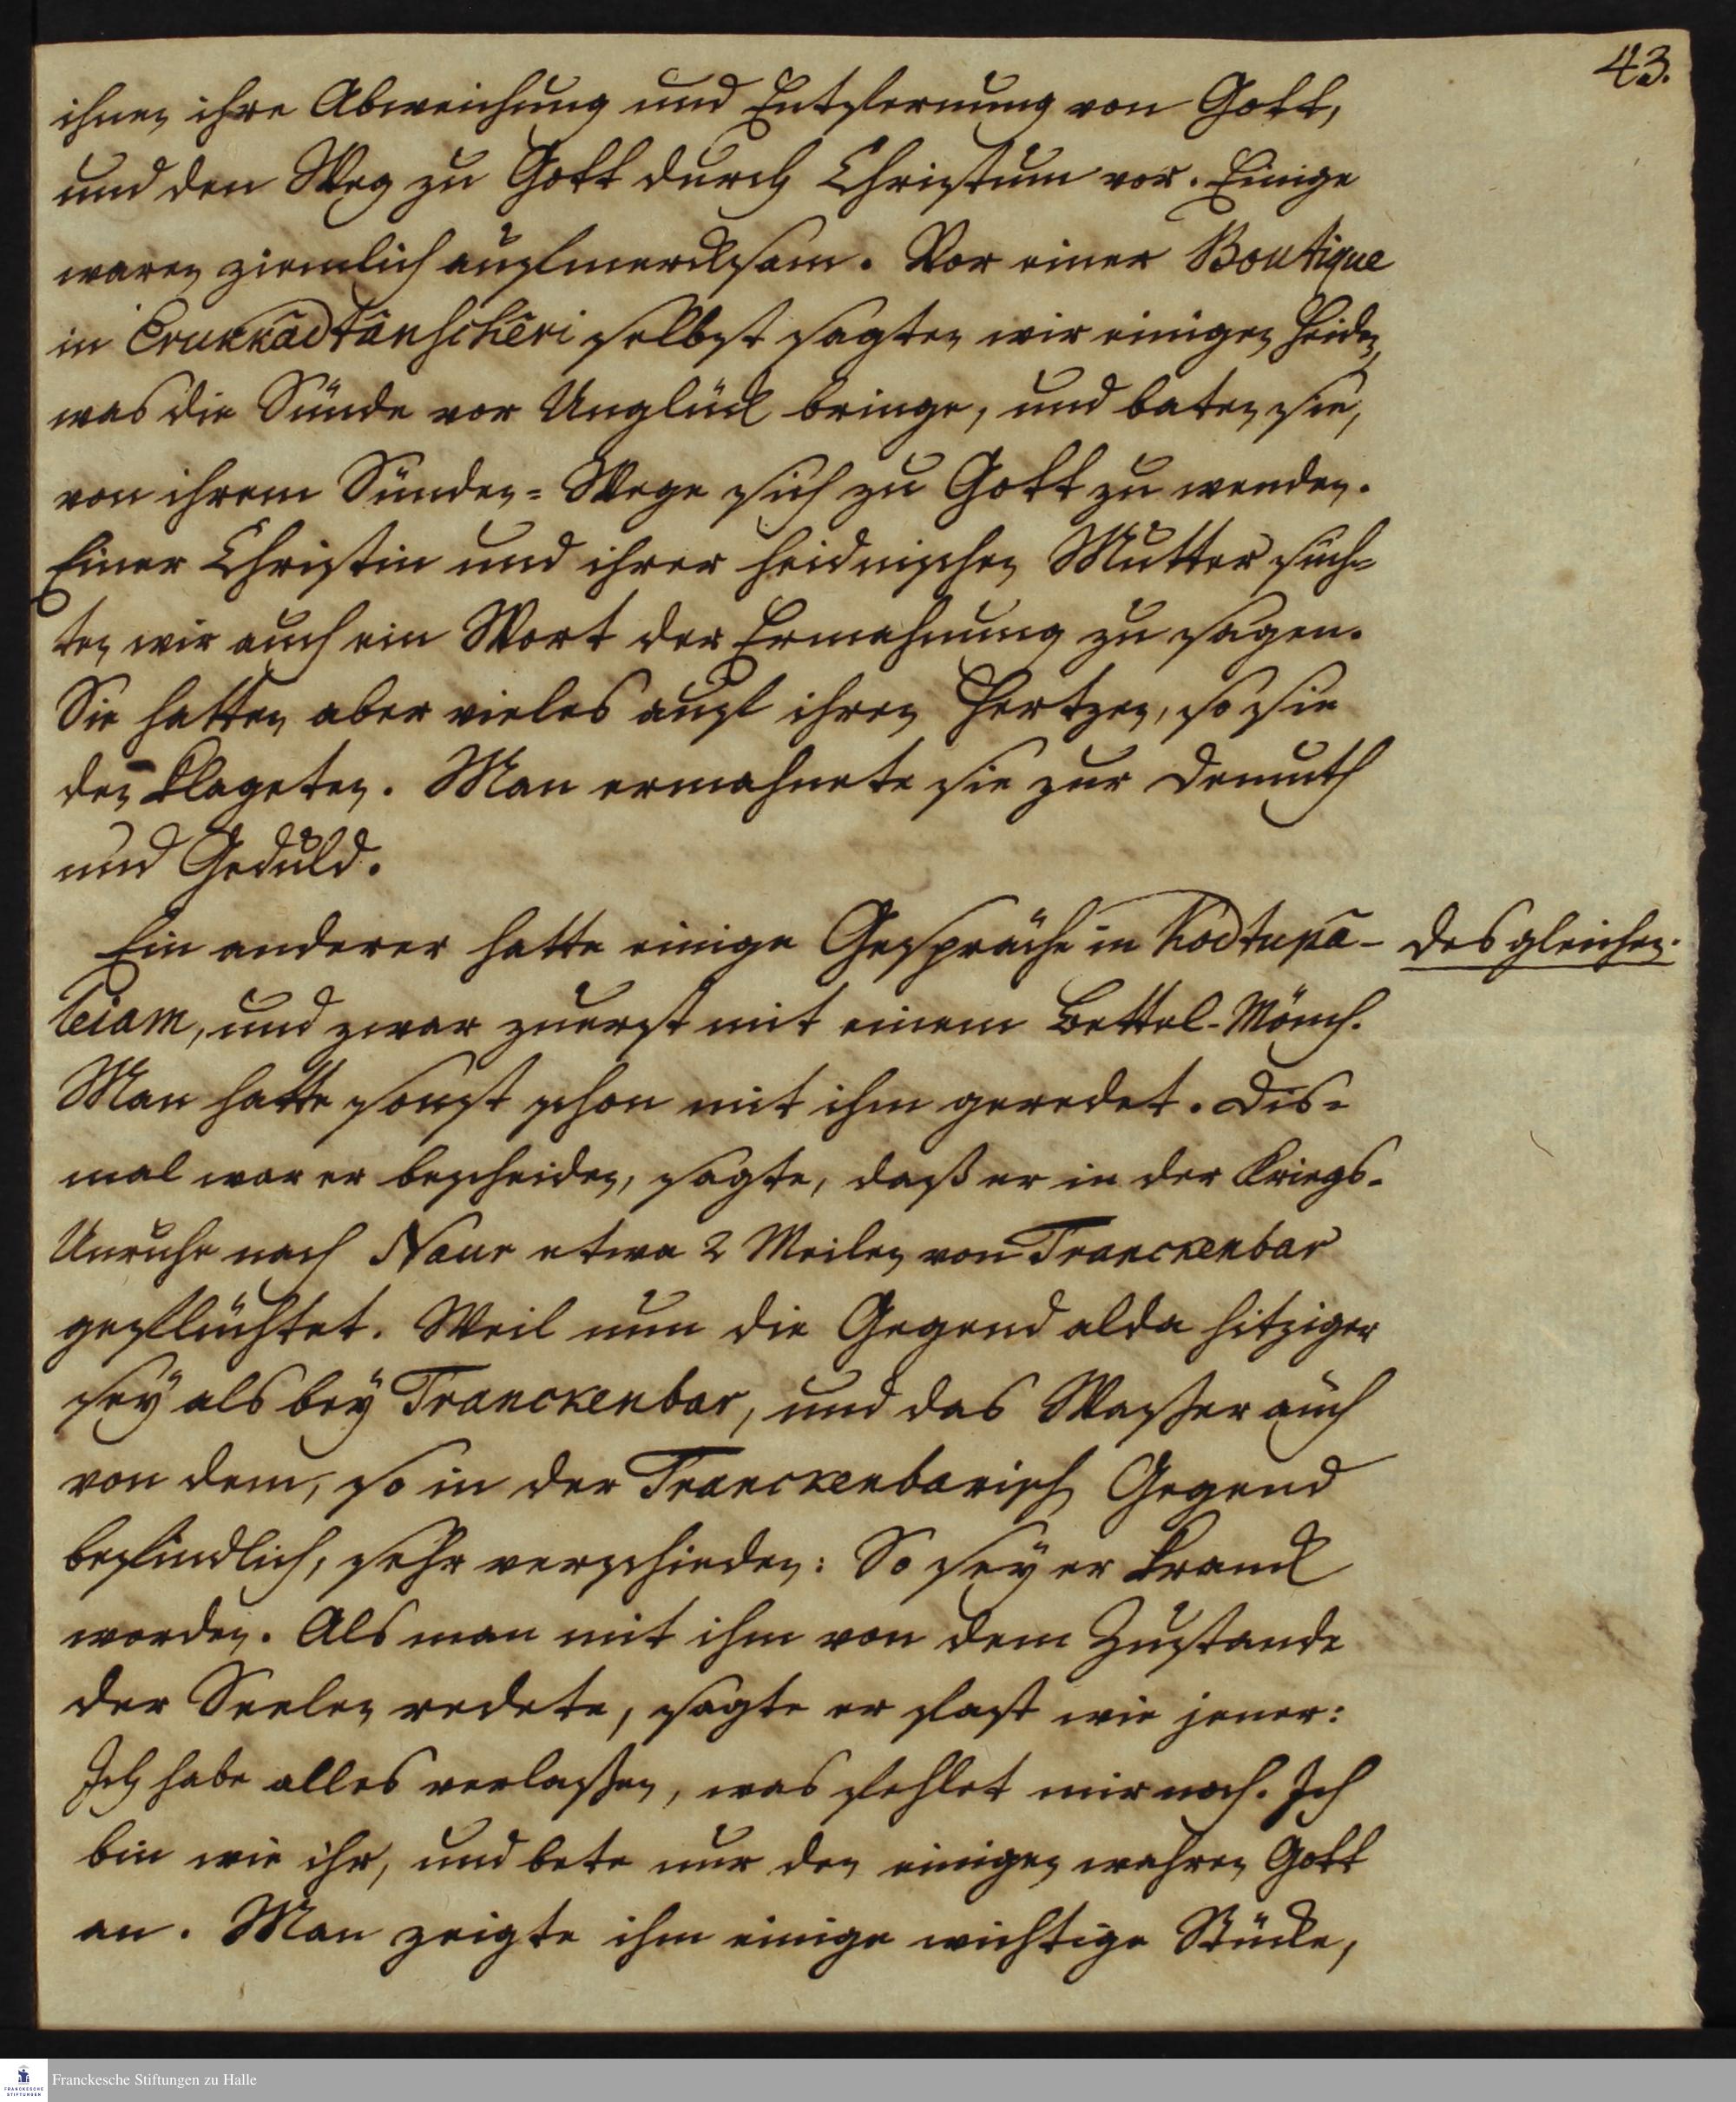 43.
ihnen ihre Abweichung und Entfernung von Gott,
und den Weg zu Gott durch Christum vor. Einige
waren ziemlich aufmercksam. Vor einer Boutique
in Erukkâdtânschêri selbst sagten wir einigen Heiden,
was die Sünde vor Unglück bringe, und baten sie,
von ihrem Sünden-Wege sich zu Gott zu wenden.
Einer Christin und ihrer heidnischen Mutter such-
ten wir auch ein Wort der Ermahnung zu sagen.
Sie hatten aber vieles auf ihren Hertzen, so sie
den klageten. Man ermahnete sie zur Demuth
und Geduld.
Ein anderer hatte einige Gespräche in Kodtupâ-
leiam, und zwar zuerst mit einem Bettel-Mönch.
desgleichen.
Man hatte sonst schon mit ihm geredet. Dis-
mal war er bescheiden, sagte, daß er in der Kriegs-
Unruhe nach Naur etwa 2 Meilen von Tranckenbar
geflüchtet. Weil nun die Gegend alda hitziger
sey als bey Tranckenbar, und das Waßer auch
von dem, so in der Tranckenbarisch Gegend
befindlich, sehr verschieden: So sey er kranck
worden. Als man mit ihm von dem Zustande
der Seelen redete, sagte er fast wie jener:
Ich habe alles verlaßen, was fehlet mir noch. Ich
bin wie ihr, und bete nur den einigen wahren Gott
an. Man zeigte ihm einige wichtige Stücke,
Franckesche Stiftungen zu Halle
FRANCKESCHE
STIFTUNGEN